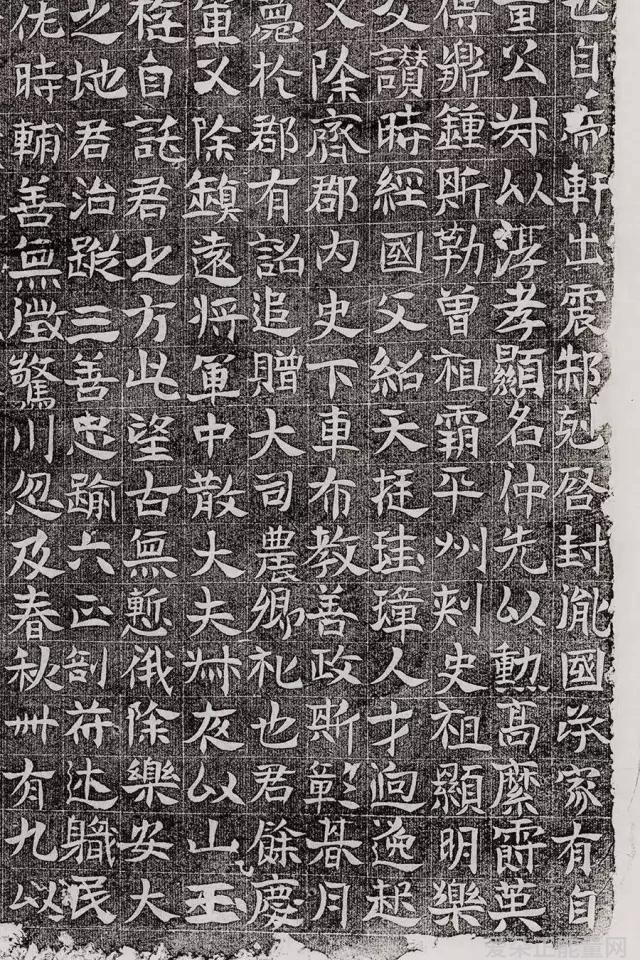 也自帝軒出震兗啓封胤國承家有自
公叔以淳孝顯名仲先以勳高麋爵英
傳鼎鍾斯勒曾祖霸平州刺史祖顯明樂
讚時經國父紹天挺珪璋人才迥逸起
又除齊郡內史下車布教善政斯彰朞月
薨於郡有詔追贈大司農卿礼也君餘慶
軍又除鎮遠將軍中散大夫夙夜以山王
自託君之方此望古無慙俄除樂安大
之地君治蹤三善忠踰六正剖苻述職民
時輔善無徵驚川忽及春秋卅有九以